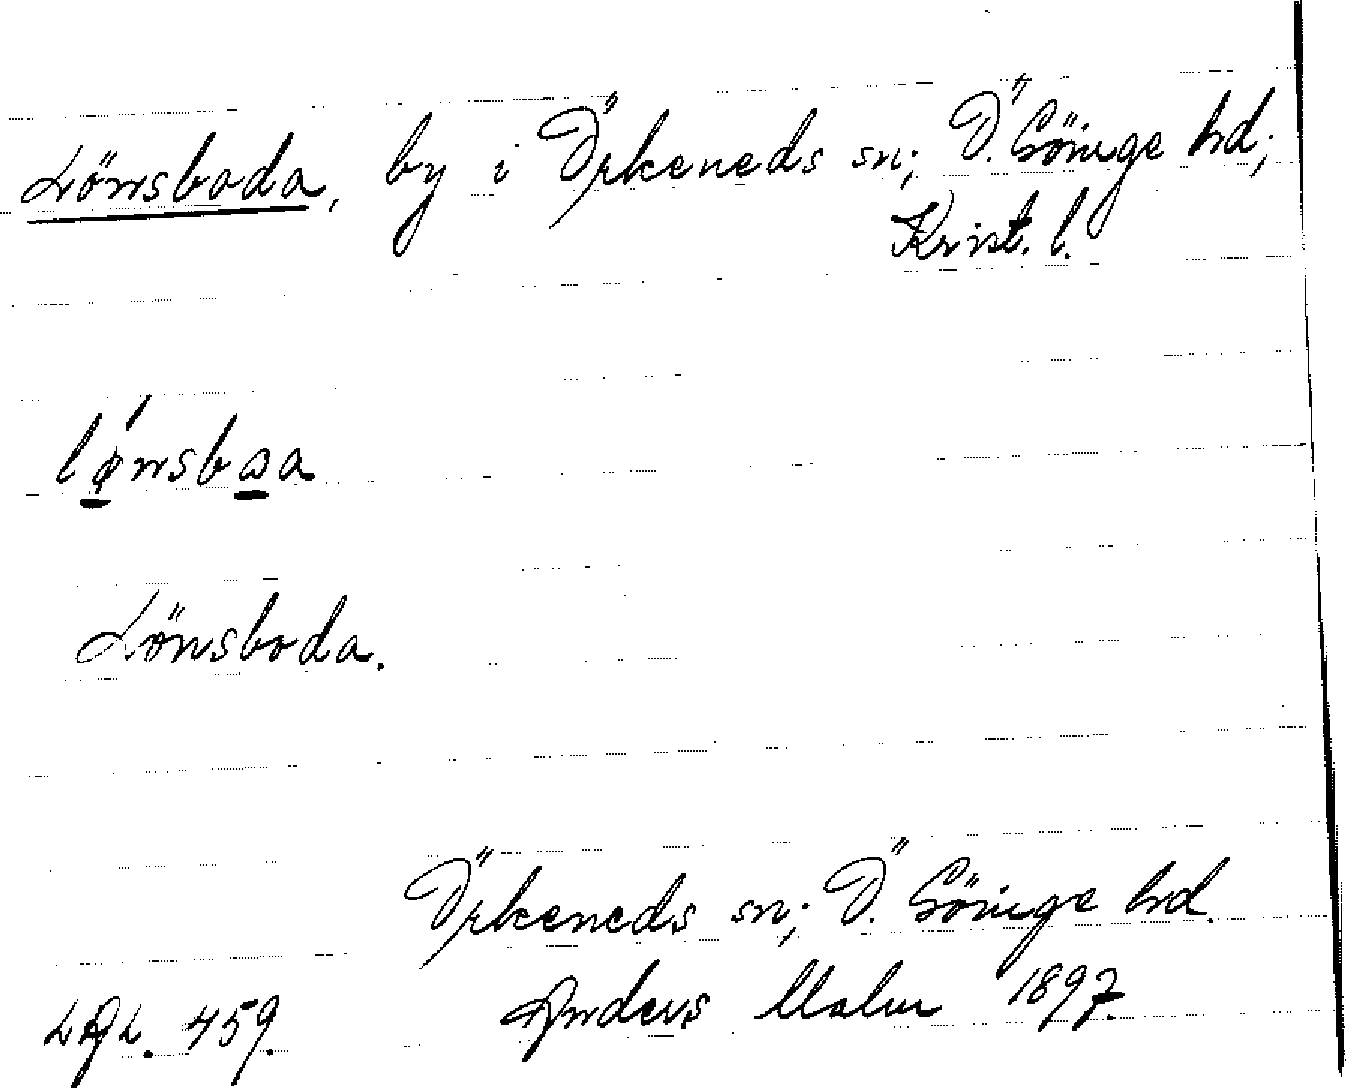 Lönsboda, by i Örkeneds sn; Ö. Göinge hd;
Krist. l.
lǿnsbɷa
Lönsboda.
Örkeneds sn; Ö. Göinge hd.
459. Anders Malm 1897.